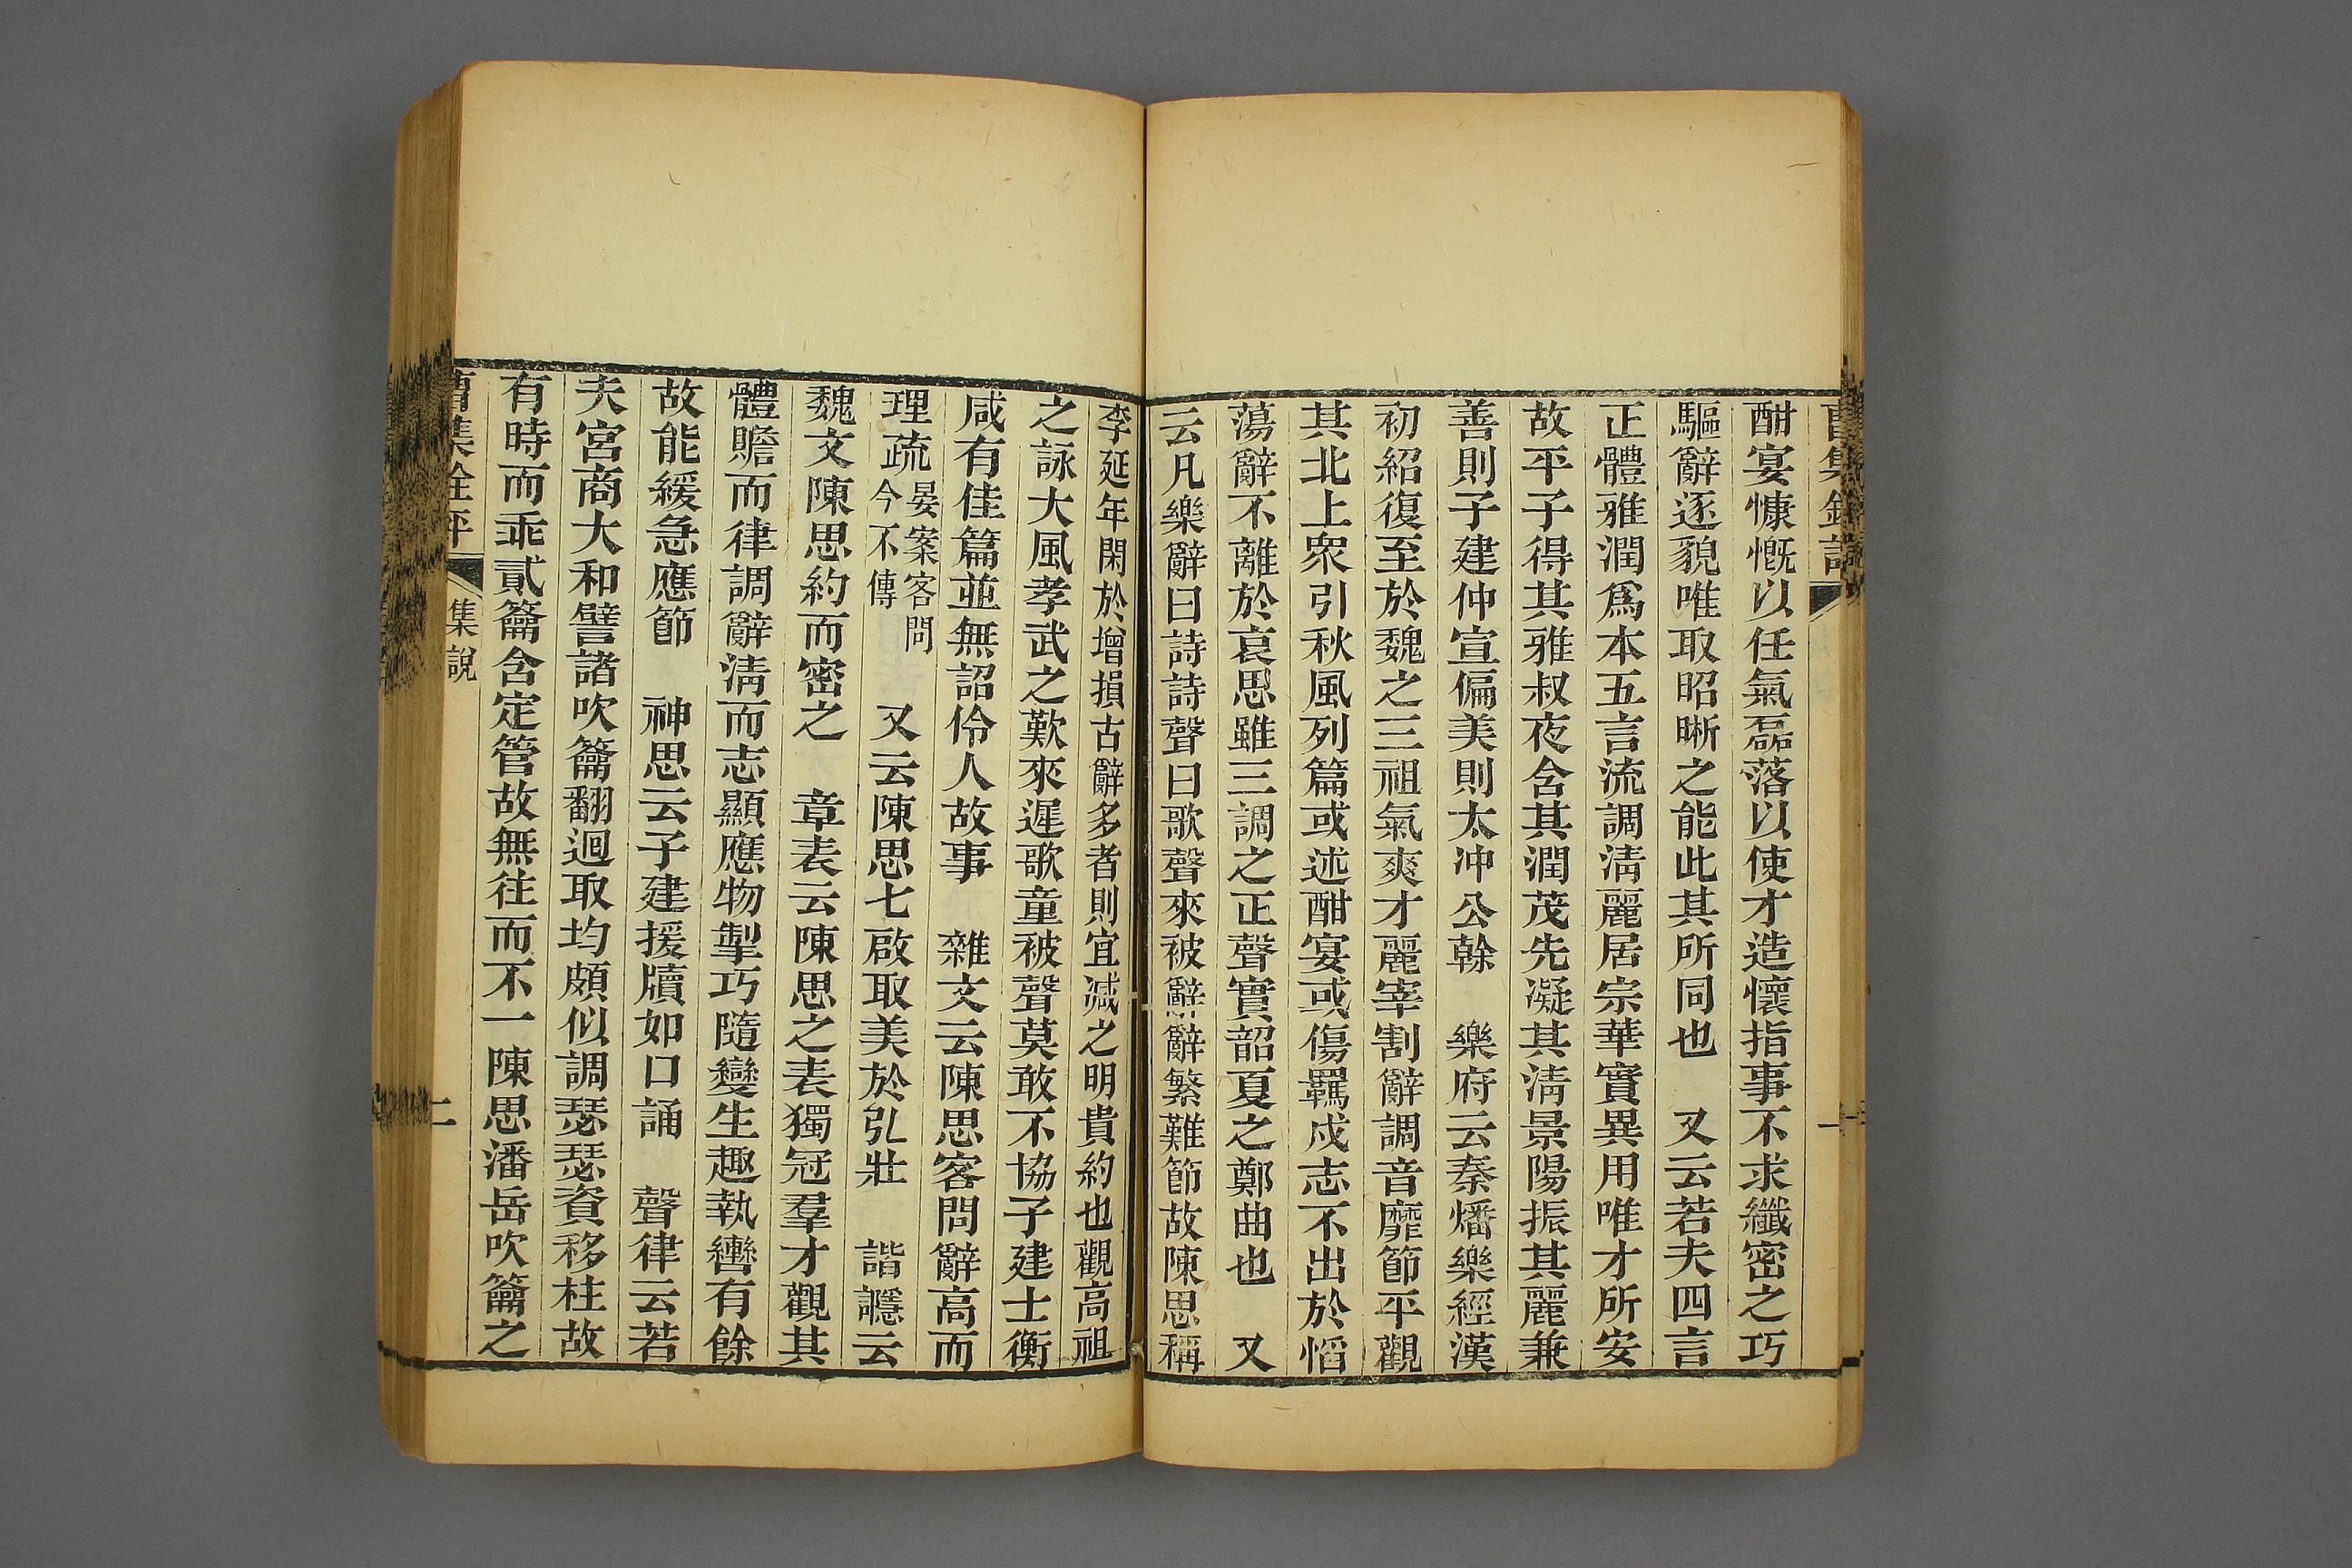 曹集銓評
酣宴慷慨以任氣磊落以使才造懷指事不求纖密之巧
驅辭逐貌唯取昭晰之能此其所同也　又云若夫四言
正體雅潤爲本五言流調淸麗居宗華實異用唯才所安
故平子得其雅叔夜含其潤茂先凝其淸景陽振其麗兼
善則子建仲宣偏美則太冲公幹　樂府云秦燔樂經漢
初紹復至於魏之三祖氣爽才麗宰割辭調音靡節平觀
其北上衆引秋風列篇或述酣宴或傷羈戍志不出於慆
蕩辭不離於哀思雖三調之正聲實韶夏之鄭曲也　又
云凡樂辭曰詩詩聲曰歌聲來被辭辭繁難節故陳思稱
李延年閑於增損古辭多者則宜減之明貴約也觀高祖
之詠大風孝武之歎來遲歌童被聲莫敢不協子建士衡
咸有佳篇並無詔伶人故事　雜文云陳思客問辭高而
理疏晏案客問今不傳　又云陳思七啟取美於弘壯　諧讔云
魏文陳思約而密之　章表云陳思之表獨冠羣才觀其
體贍而律調辭淸而志顯應物掣巧隨變生趣執轡有餘
故能緩急應節　神思云子建援牘如口誦　聲律云若
夫宮商大和譬諸吹籥翻迴取均頗似調瑟瑟資移柱故
有時而乖貳籥含定管故無往而不一陳思潘岳吹籥之
曹集銓評　集說　二